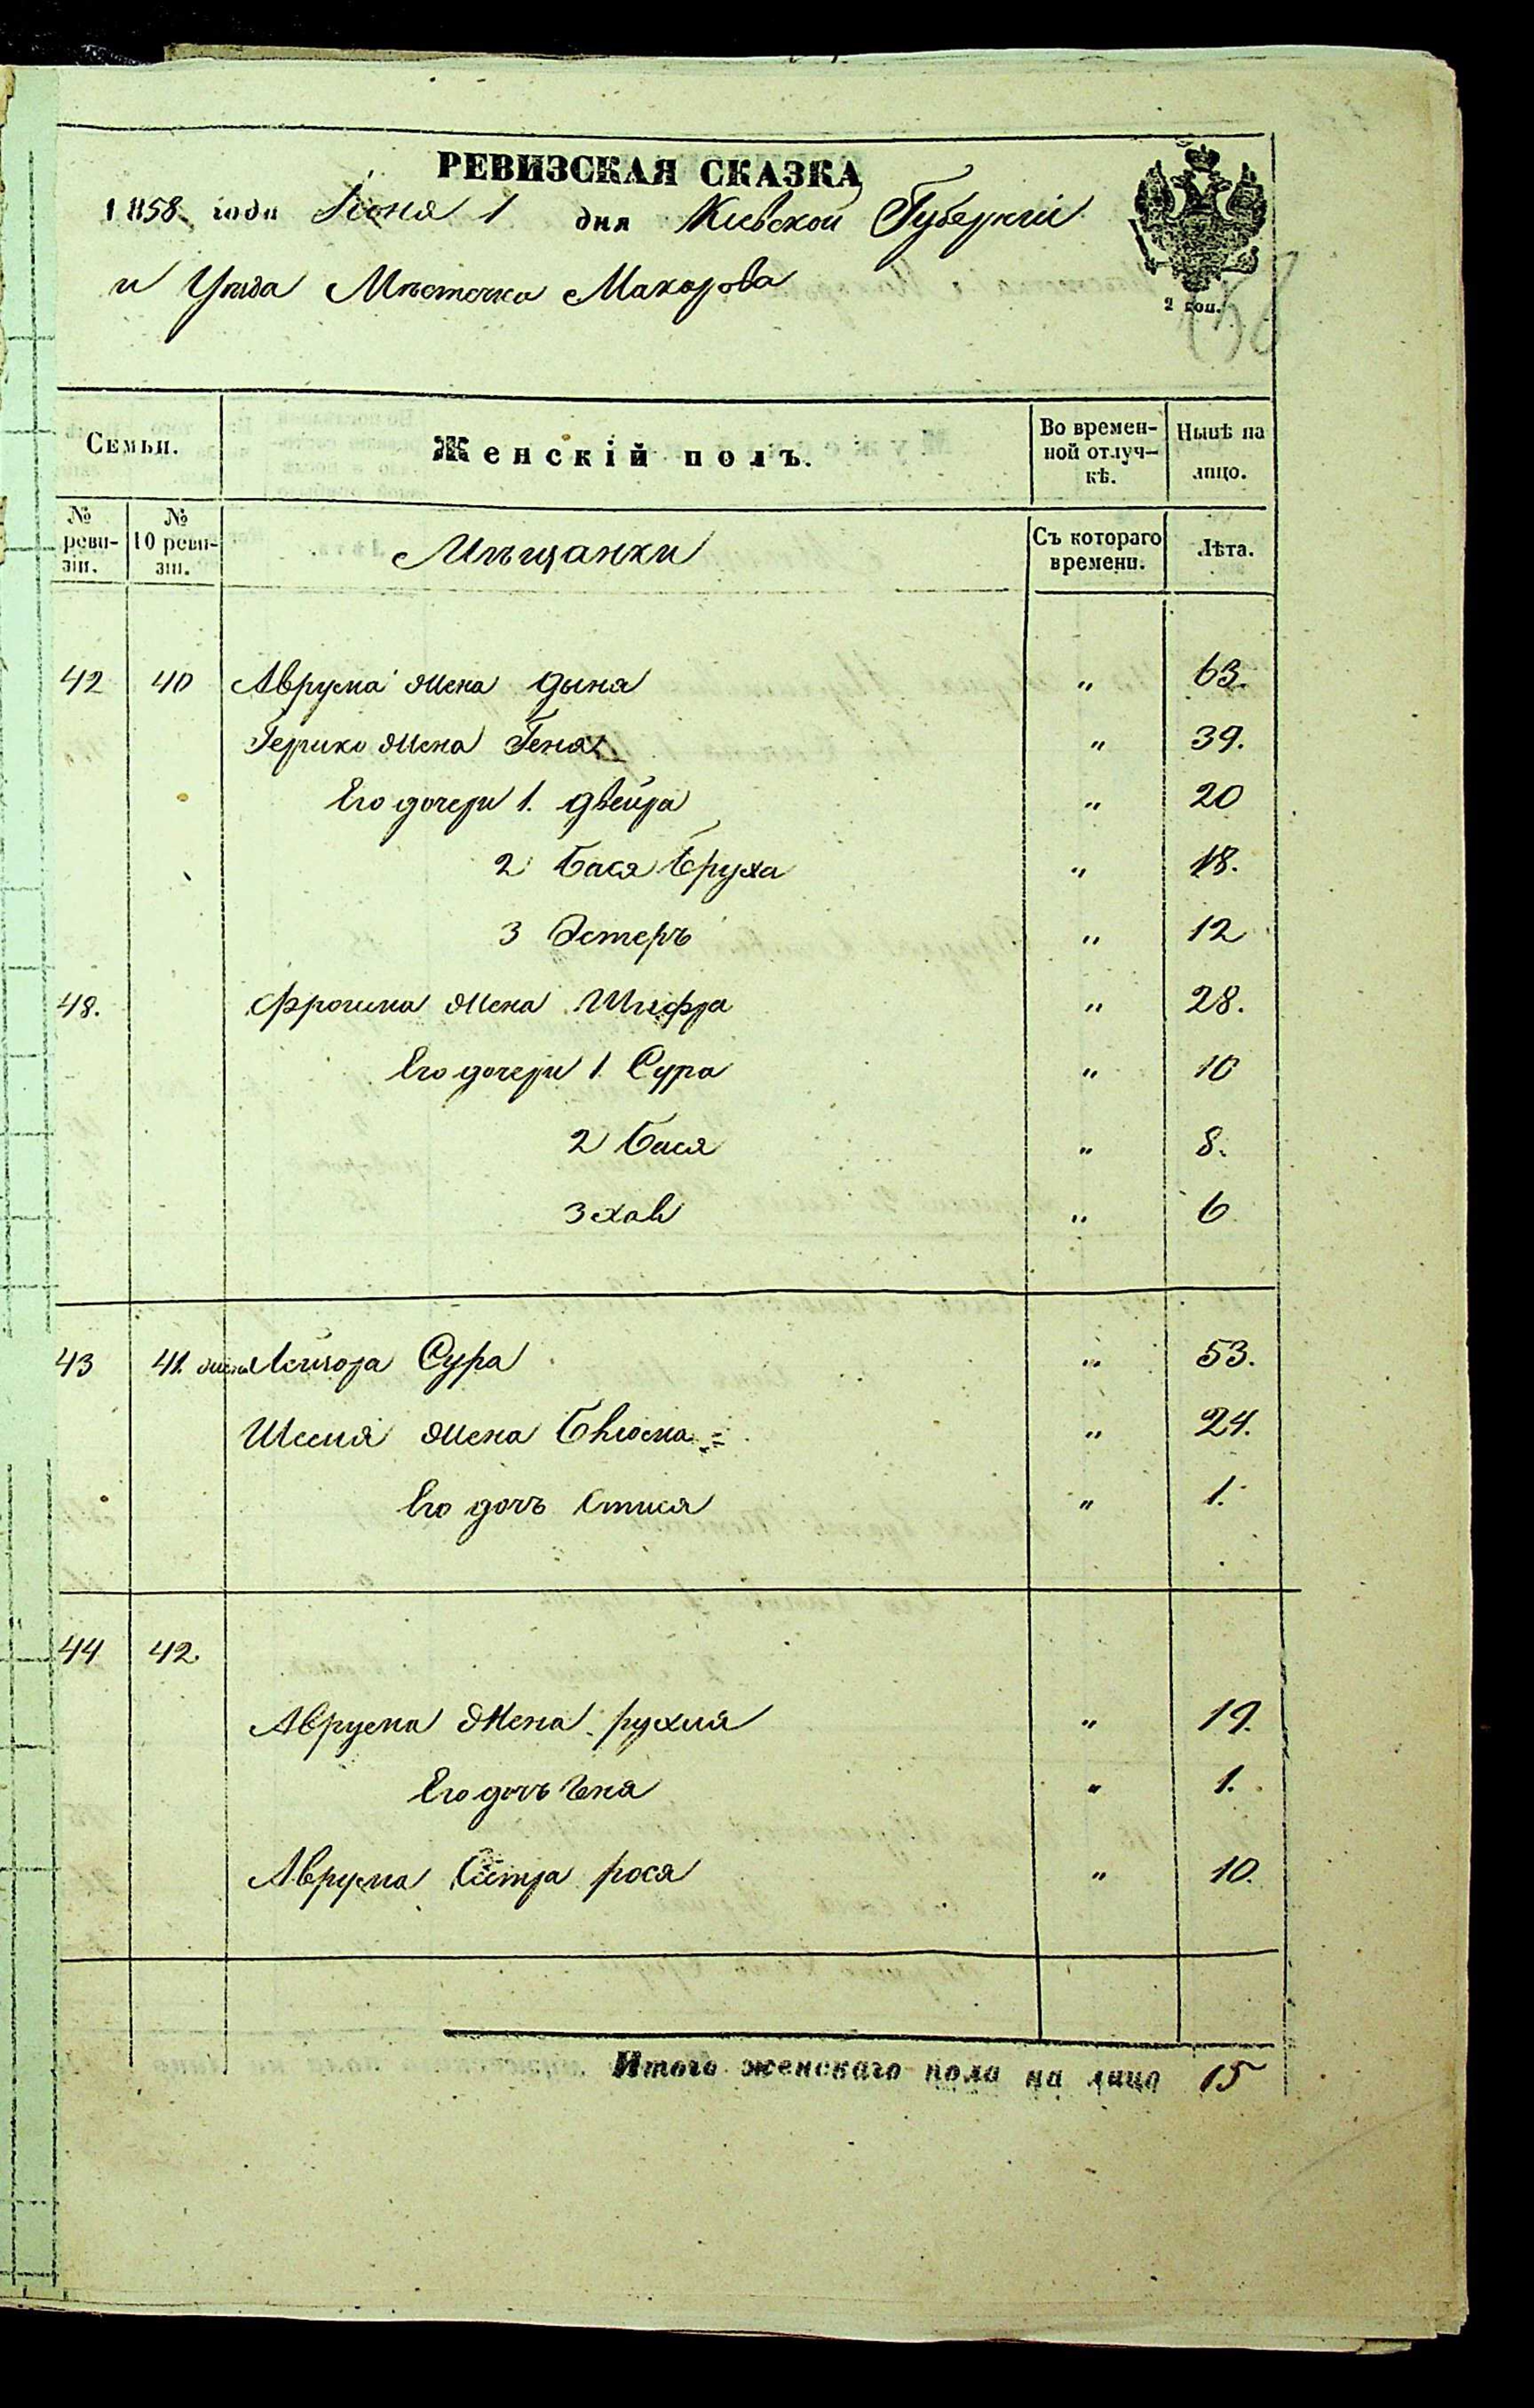 РЕВИЗСКАЯ СКАЗКА
1858 года Іюня 1 дня Кіевской Губерніи
и Уѣзда Мѣстечка Макарова
2 коп.
Семьи.
Женскій полъ.
Во времен-
ной отлуч-
кѣ.
Нынѣ на
лицо.
№
реви-
зіи.
№
10 реви-
зіи.
Мѣщанки
Съ котораго
времени.
Лѣта.
42 40 Аврума жена Дыня " 63.
Гершко жена Геня " 39.
Его дочери 1. Двейра " 20
2 Бася Бруха " 18.
3 Эстеръ " 12
48. Фроима жена Шифра " 28.
Его дочери 1 Сура " 10
2 Бася " 8.
3 Хава " 6
43 41. жена Сура " 53.
жена " 24.
Его дочь " 1.
44 42.
Аврума жена рухля " 19.
Его дочь " 1.
Аврума Сестра рося " 10.
Итого женскаго пола на лицо 15